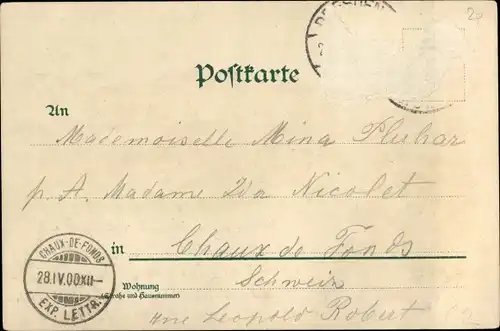 20
DRESDEN
Postkarte
An
Mademoiselle Mina Pluhar
p. A. Madame Ida Nicolet
in Chaux de Fonds
Schweiz
Wohnung
(Straße und Hausnummer)
rue Leopold Robert
CHAUX-DE-FONDS
28.IV.00XII–
EXP. LETTR.